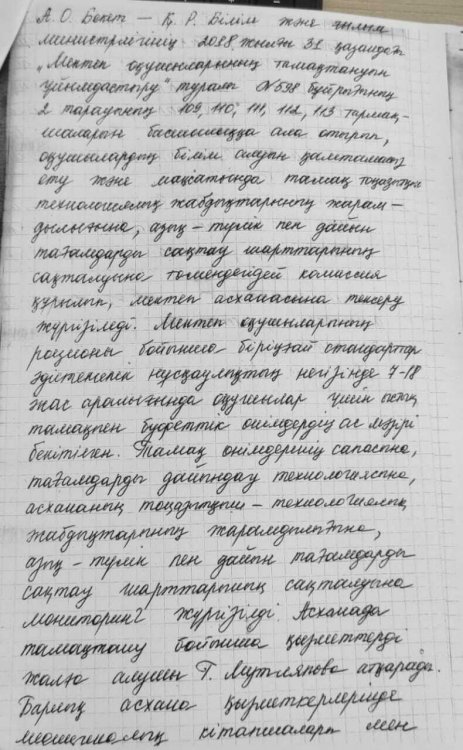 А. О. Бекет – Қ. Р. Білім және ғылым
министрлігінің 2018 жылғы 31 қазандағы
„Мектеп оқушыларының тамақтануын
ұйымдастыру" туралы №598 бұйрығының
2 тарауының 109, 110, 111, 112, 113 тармақ-
шаларын басшылыққа ала отырып,
оқушылардың білім алуын қамтамасыз
ету және мақсатында тамақ тоңазытқыш
технологиялық жабдықтарының жарам-
дылығына, азық-түлік пен дайын
тағамдарды сақтау шарттарының
сақталуына төмендегідей комиссия
құрылып, мектеп асханасына тексеру
жүргізілді. Мектеп оқушыларының
рационы бойынша бірыңғай стандарттар
әдістемелік нұсқаулықтың негізінде 7-18
жас аралығында оқушылар үшін ыстық
тамақпен буфеттік өнімдердің ас мәзірі
бекітілген. Тамақ өнімдерінің сапасына,
тағамдарды дайындау технологиясына,
асхананың тоңазытқыш-технологиялық
жабдықтарының жарамдылығына,
азық-түлік пен дайын тағамдарды
сақтау шарттарының сақталуына
мониторинг жүргізілді. Асханада
тамақтану бойынша қызметтерді
жалға алушы Г. атқарады.
Барлық асхана қызметкерлерінде
медициналық кітапшалары мен